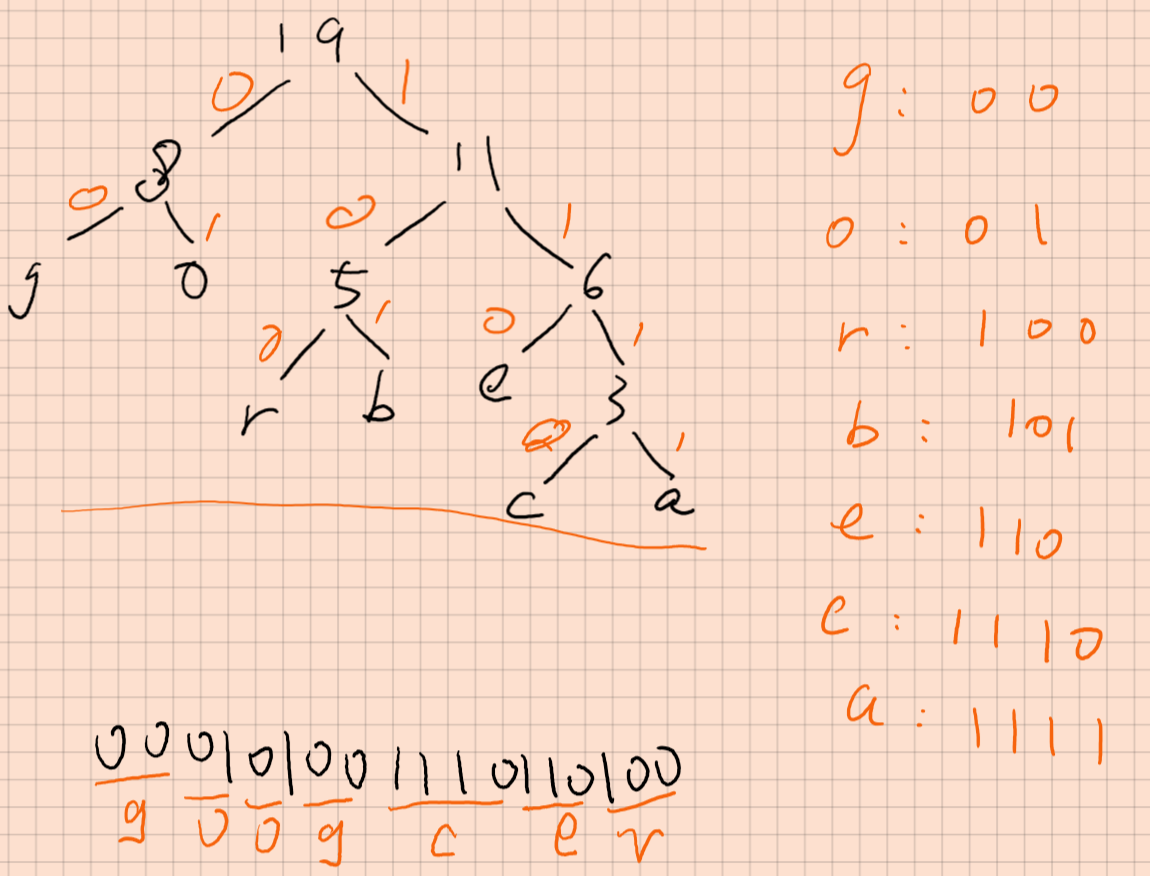 19
0 1
8 11
0 1 0 1
g o 5 6
0 1 0 1
r b e 3
0 1
c a
g: 00
o: 01
r: 100
b: 101
e: 110
c: 1110
a: 1111
00 01 01 00 1110 110 100
g o o g c e r